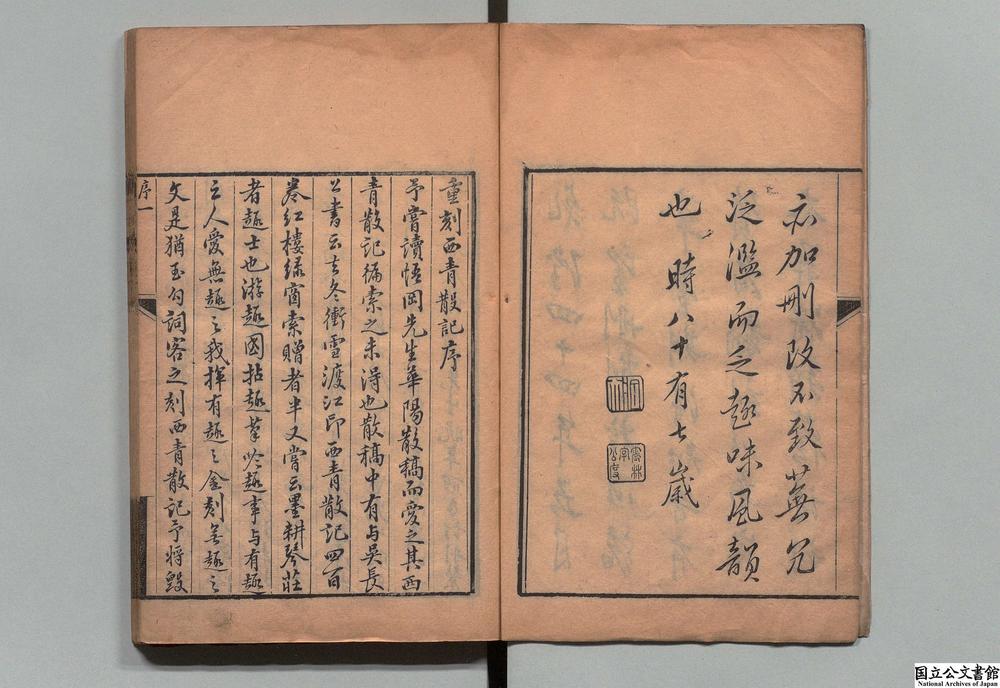 亦加刪改不致蕪冗
泛濫而乏趣味風韻
也時八十有七歲
重刻西青散記序
予嘗讀悟岡先生華陽散稿而愛之其西
青散記徧索之未得也散稿中有与吴長
公書云去冬衝雪渡江印西青散記四百
卷紅樓緑窗索贈者半又嘗云墨耕琴莊
者趣士也游趣國拈趣筆吟趣事与有趣
之人愛無趣之我揮有趣之金刻無趣之
文是猶玉勾詞客之刻西青散記予將毀
序一
国立公文書館
National Archives of Japan